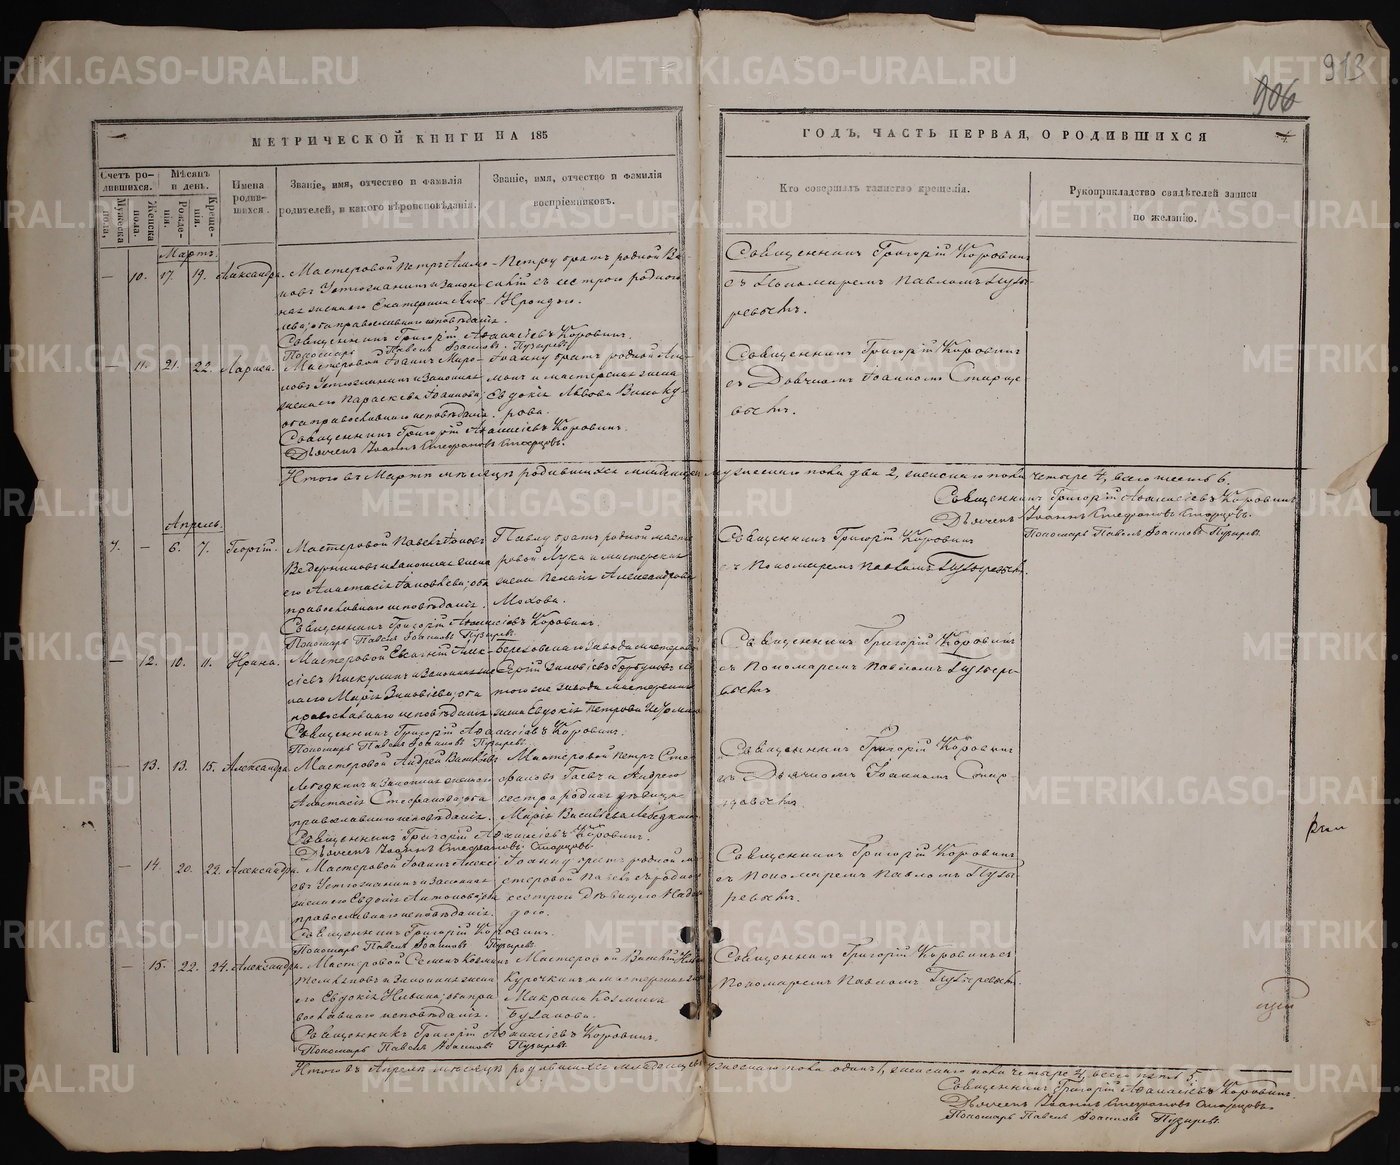 913
906
МЕТРИЧЕСКОЙ КНИГИ НА 185
ГОДЪ, ЧАСТЬ ПЕРВАЯ, О РОДИВШИХСЯ
Счетъ родившихся.
Мужеска пола,
Женска пола.
Мѣсяцъ и день.
Рожденія.
Крещенія.
Имена родившихся.
Званіе, имя, отчество и фамилія
родителей, и какого вѣроисповѣданія.
Званіе, имя, отчество и фамилія
воспріемниковъ.
Кто совершалъ таинство крещенія.
Рукоприкладство свидѣтелей записи
по желанію.
Мартъ.
— 10. 17. 19. Александра. Мастеровой Петръ
Устюжанинъ и законная
жена его Екатерина
оба православнаго исповѣданія.
Петру братъ родной
съ сестрою родною
Священникъ Григорій Коровинъ
съ Пономаремъ Павломъ Пузыревымъ.
Священникъ Григорій Аѳанасіевъ Коровинъ.
Пономарь Павелъ Іоанновъ Пузыревъ.
— 11. 21. 22. Лариса. Мастеровой Іоаннъ Миро-
новъ Устюжанинъ и законная
жена его Параскева Іоаннова,
оба православнаго исповѣданія.
Іоанну братъ родной
и мастерская жена
Евдокія Львова Винокурова.
Священникъ Григорій Коровинъ
съ Дьячкомъ Іоанномъ Старцевымъ.
Священникъ Григорій Аѳанасіевъ Коровинъ.
Дьячекъ Іоаннъ Стефановъ Старцовъ.
Итого въ Мартѣ мѣсяцѣ родившихся младенцевъ мужескаго пола два 2, женскаго пола четыре 4, всего шесть 6.
Священникъ Григорій Аѳанасіевъ Коровинъ
Дьячекъ Іоаннъ Стефановъ Старцовъ.
Пономарь Павелъ Іоанновъ Пузыревъ.
Апрель.
7. — 6. 7. Георгій. Мастеровой Павелъ
Ведерниковъ и законная жена
его Анастасія Іаковлева, оба
православнаго исповѣданія.
Павлу братъ родной масте-
ровой Лука и мастерская
жена Пелагія Александрова
Мохова.
Священникъ Григорій Коровинъ
съ Пономаремъ Павломъ Пузыревымъ.
Священникъ Григорій Аѳанасіевъ Коровинъ.
Пономарь Павелъ Іоанновъ Пузыревъ.
— 12. 10. 11. Ирина. Мастеровой Евгеній Алек-
сіевъ Пискулинъ и законная же-
на его Марія Зиновіева, оба
православнаго исповѣданія.
завода мастеровой
Сергій Зиновіевъ Горбуновъ и
того же завода мастерская
жена Евдокія Петрова
Священникъ Григорій Коровинъ
съ Пономаремъ Павломъ Пузыревымъ
Священникъ Григорій Аѳанасіевъ Коровинъ.
Пономарь Павелъ Іоанновъ Пузыревъ.
— 13. 13. 15. Александра. Мастеровой Андрей Васильевъ
Лебедкинъ и законная жена его
Анастасія Стефанова, оба
православнаго исповѣданія.
Мастеровой Петръ Сте-
фановъ Гаевъ и Андрею
сестра родная дѣвица
Марія Васильева Лебедкина
Священникъ Григорій Коровинъ
съ Дьячкомъ Іоанномъ Старцовымъ
Священникъ Григорій Аѳанасіевъ Коровинъ.
Дьячекъ Іоаннъ Стефановъ Старцовъ.
— 14. 20. 22. Александра. Мастеровой Іоаннъ Алексі-
евъ Устюжанинъ и законная
жена его Евдокія Антонова, оба
православнаго исповѣданія.
Іоанну братъ родной ма-
стеровой Павелъ съ родною
сестрою дѣвицею
Священникъ Григорій Коровинъ
съ Пономаремъ Павломъ Пузыревымъ.
Священникъ Григорій Коровинъ.
Пономарь Павелъ Іоанновъ Пузыревъ.
— 15. 22. 24. Александра. Мастеровой Семенъ Козминъ
и законная жена
его Евдокія Ильина, оба пра-
вославнаго исповѣданія.
Мастеровой Василій
Курочкинъ и мастерская жена
Макрина Козмина
Буланова.
Священникъ Григорій Коровинъ съ
Пономаремъ Павломъ Пузыревымъ.
Священникъ Григорій Аѳанасіевъ Коровинъ.
Пономарь Павелъ Іоанновъ Пузыревъ.
Итого въ Апрелѣ мѣсяцѣ родившихся младенцевъ мужескаго пола одинъ 1, женскаго пола четыре 4, всего пять 5.
Священникъ Григорій Аѳанасіевъ Коровинъ.
Дьячекъ Іоаннъ Стефановъ Старцовъ.
Пономарь Павелъ Іоанновъ Пузыревъ.
METRIKI.GASO-URAL.RU